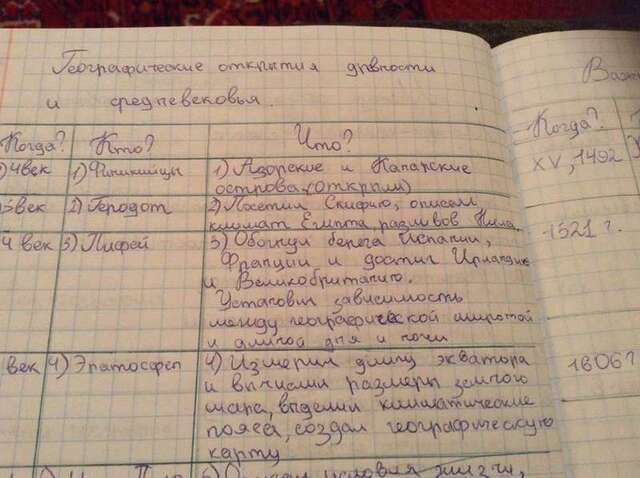 Географические открытия древности
и средневековья.
Когда? Кто? Что?
)4век 1) Финикийцы 1) Азорские и Канарские
острова (открыли)
5век 2) Геродот 2) Посетил Скифию, описал
климат Египта, разливов Нила.
4 век 3) Пифей 3) Обогнул берега Испании,
Франции и достиг Ирландию
и Великобританию.
Установил зависимость
между географической широтой
и длиной дня и ночи
век 4) Эратосфен 4) Измерил длину экватора
и вычислил размеры земного
шара, выделил климатические
пояса, создал географическую
карту
условия жизни,
Важн
Когда?
XV, 1492
1521 г.
1606?